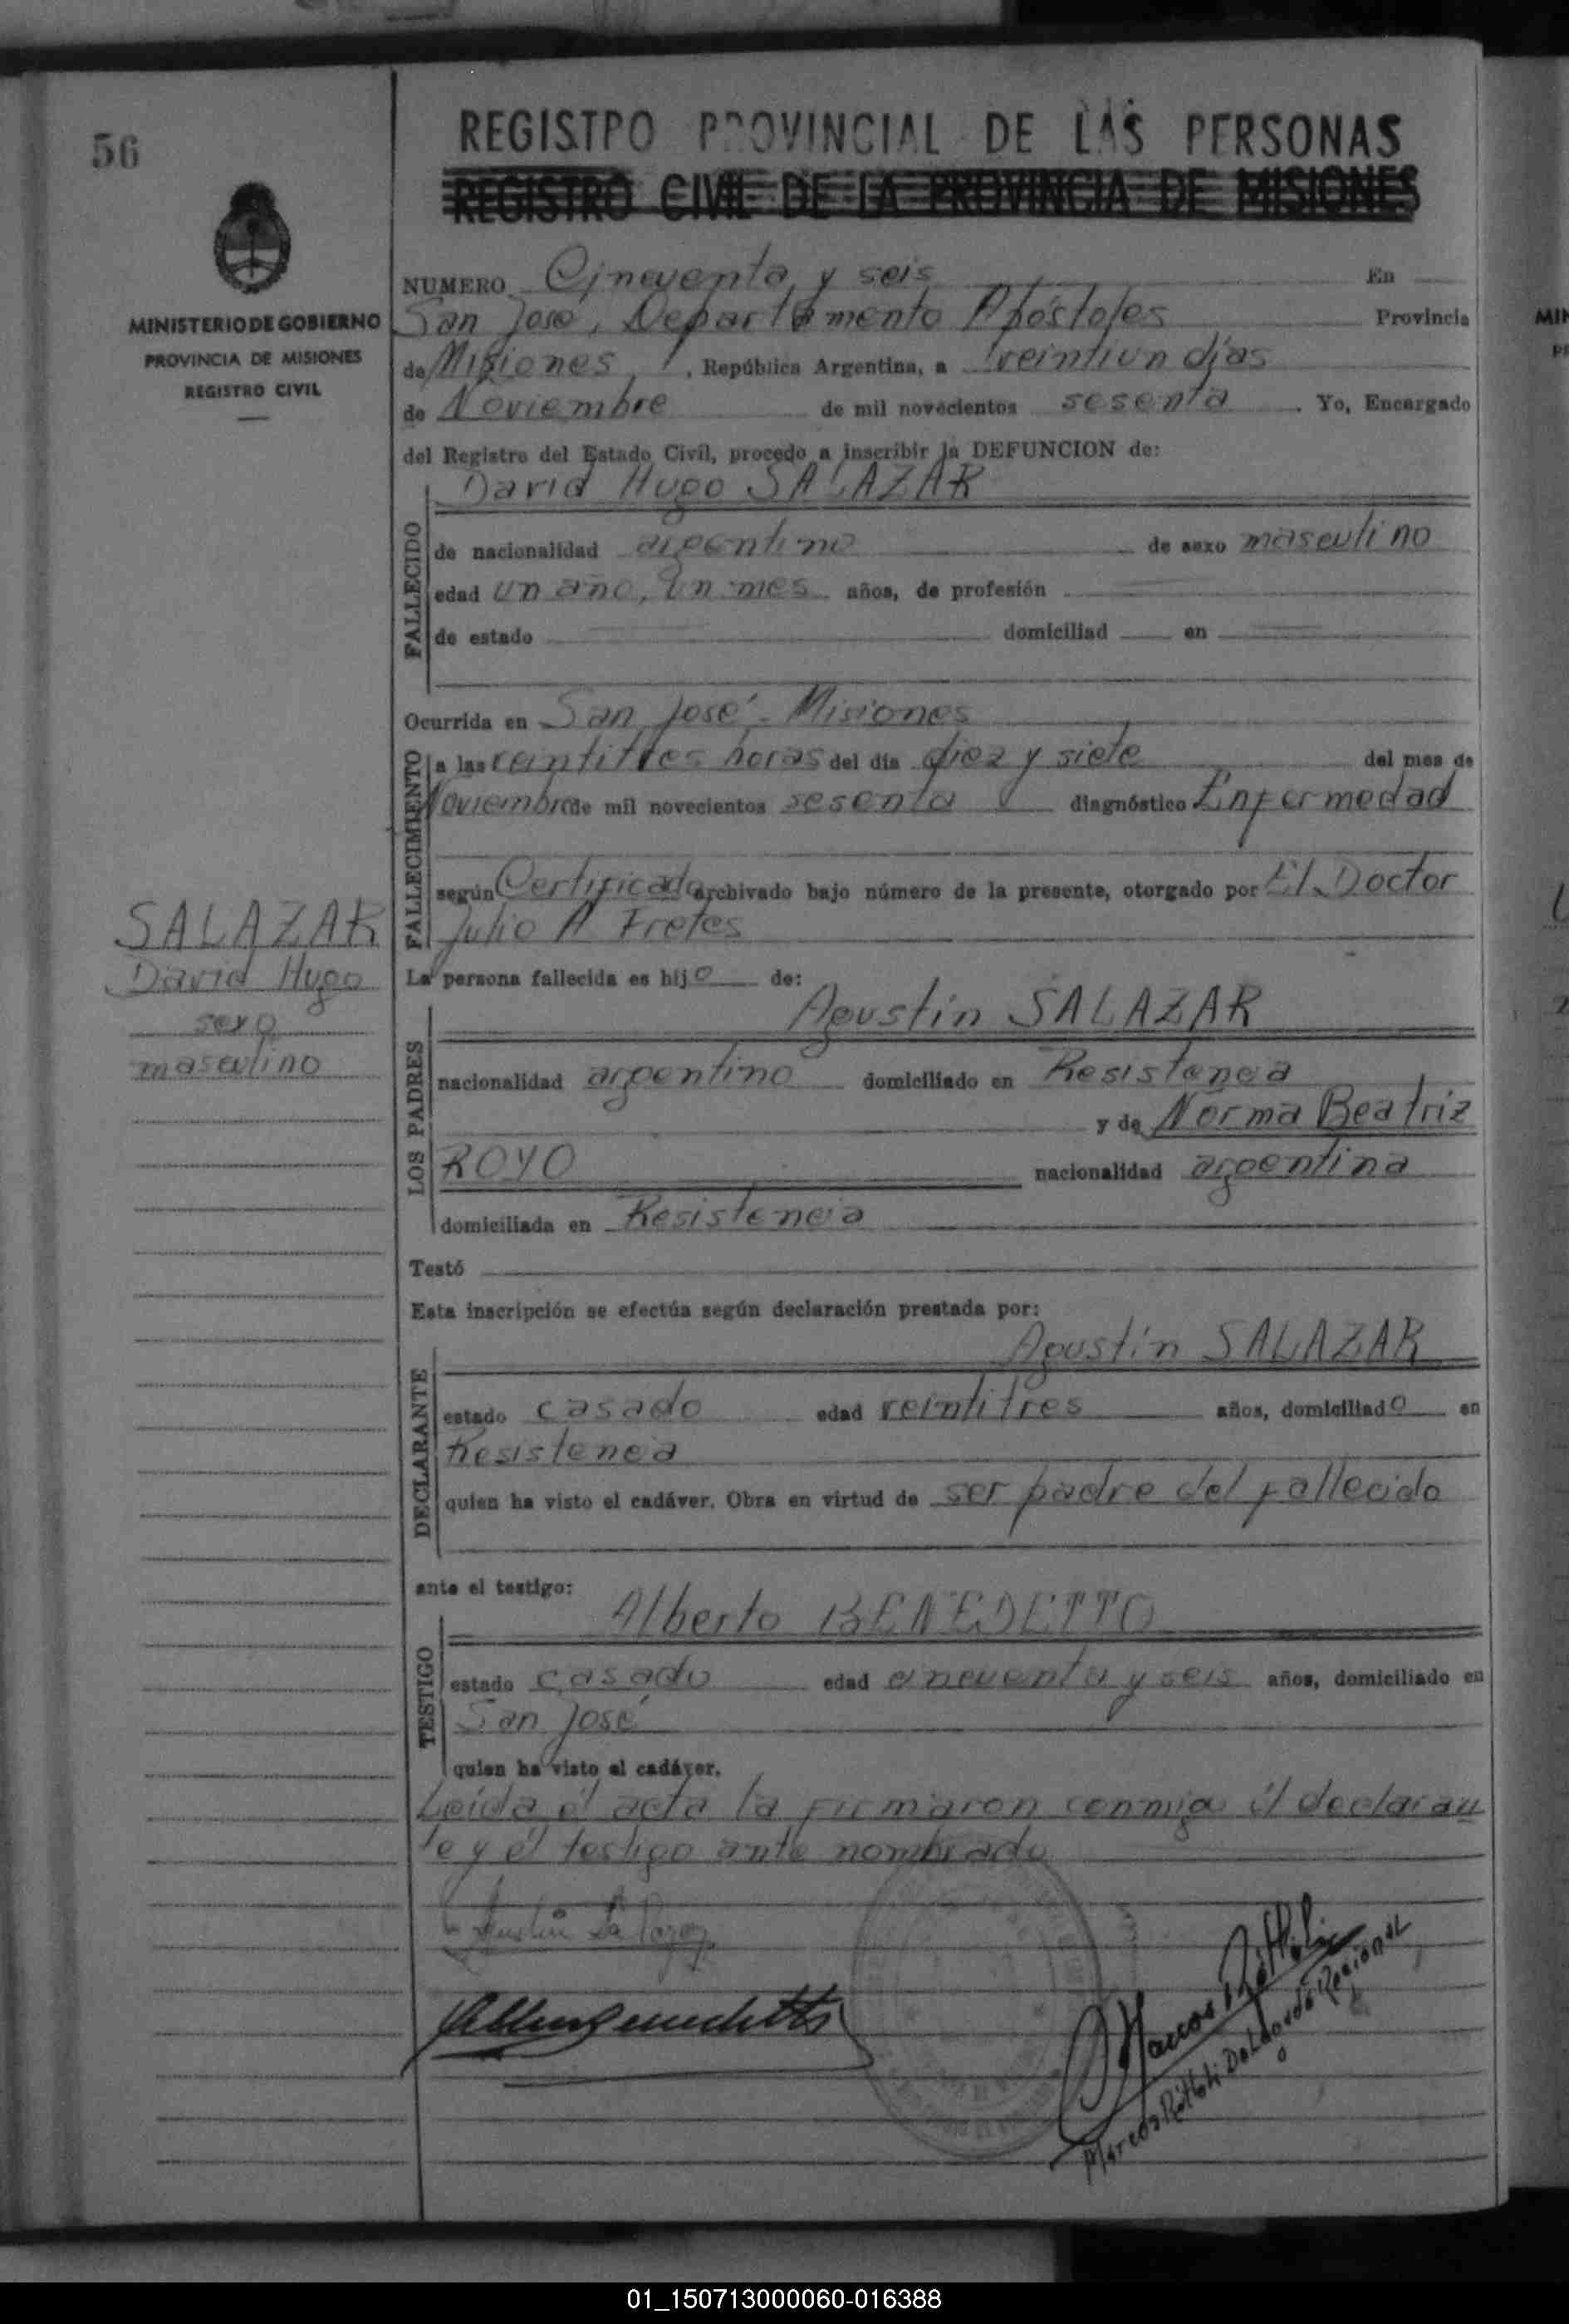 56
MINISTERIO DE GOBIERNO
PROVINCIA DE MISIONES
REGISTRO CIVIL
SALAZAR
David Hugo
sexo
masculino
REGISTRO PROVINCIAL DE LAS PERSONAS
REGISTRO CIVIL DE LA PROVINCIA DE MISIONES
NUMERO Cincuenta y seis En
San José, Departamento Apóstoles Provincia
de Misiones, República Argentina, a veintiun días
de Noviembre de mil novecientos sesenta. Yo, Encargado
del Registro del Estado Civil, procedo a inscribir la DEFUNCION de:
David Hugo SALAZAR
FALLECIDO
de nacionalidad argentino de sexo masculino
edad un año, un mes años, de profesión
de estado domiciliad en
Ocurrida en San José - Misiones
FALLECIMIENTO
a las veintitres horas del día diez y siete del mes de
Noviembre de mil novecientos sesenta diagnóstico Enfermedad
según Certificado archivado bajo número de la presente, otorgado por El Doctor
Julio A Fretes
La persona fallecida es hijo de:
LOS PADRES
Agustín SALAZAR
nacionalidad argentino domiciliado en Resistencia
y de Norma Beatriz
ROYO nacionalidad argentina
domiciliada en Resistencia
Testó
Esta inscripción se efectúa según declaración prestada por:
DECLARANTE
Agustín SALAZAR
estado casado edad veintitres años, domiciliado en
Resistencia
quien ha visto el cadáver. Obra en virtud de ser padre del fallecido
ante el testigo:
TESTIGO
Alberto BENEDETTO
estado casado edad cincuenta y seis años, domiciliado en
San José
quien ha visto el cadáver.
Leída el acta la firmaron conmigo el declaran
te y el testigo ante nombrado
Agustín Salazar
Delegado Regional
01_150713000060-016388